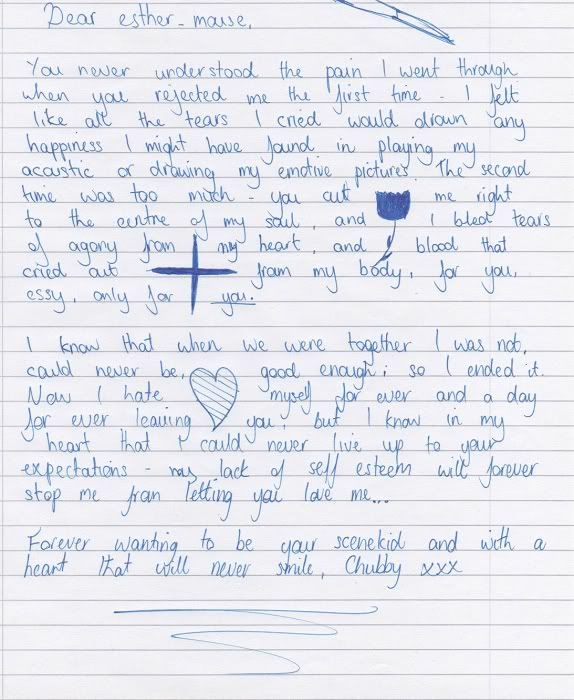 Dear esther-mouse,
You never understood the pain I went through
when you rejected me the first time - I felt
like all the tears I cried would drown any
happiness I might have found in playing my
acoustic or drawing my emotive pictures. The second
time was too much - you cut me right
to the centre of my soul, and I bled tears
of agony from my heart, and blood that
cried out from my body, for you,
essy, only for you.
I know that when we were together I was not,
could never be, good enough; so I ended it.
Now I hate myself for ever and a day
for ever leaving you, but I know in my
heart that I could never live up to your
expectations - my lack of self esteem will forever
stop me from letting you love me...
Forever wanting to be your scenekid and with a
heart that will never smile, Chubby xxx